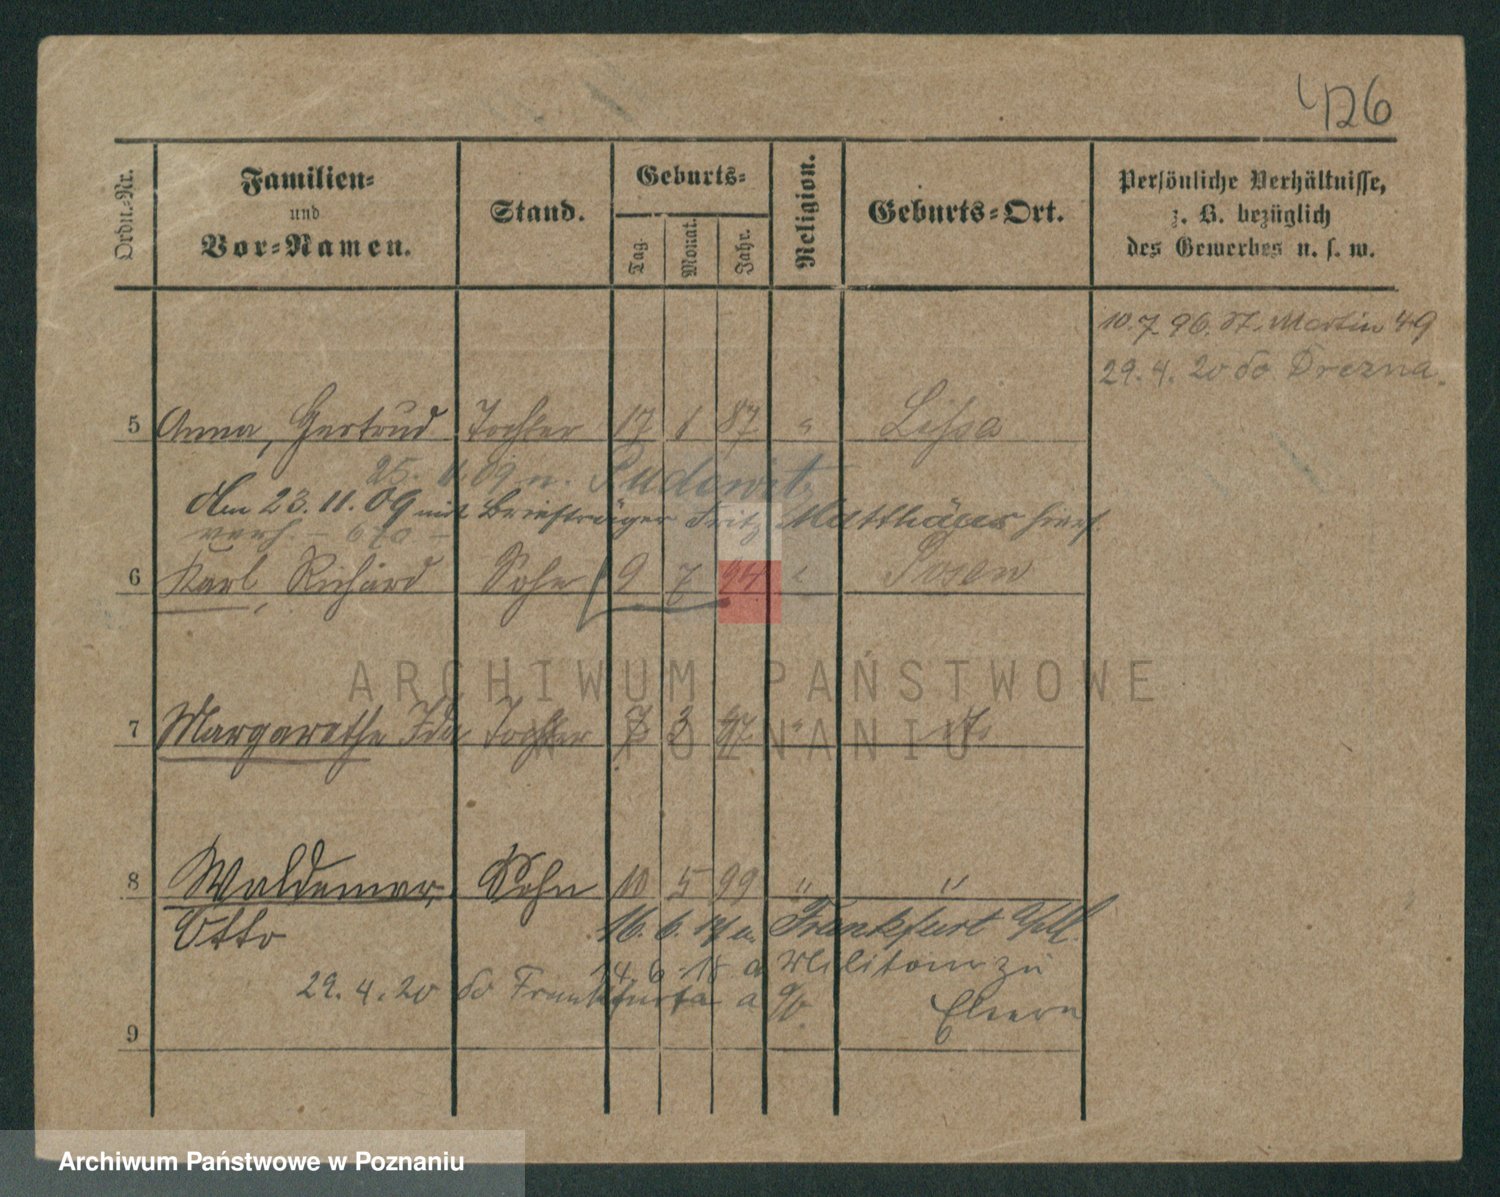 426
Ordn.-Nr.
Familien-
und
Vor-Namen.
Stand.
Geburts-
Tag.
Monat.
Jahr.
Religion.
Geburts-Ort.
Persönliche Verhältnisse,
z. B. bezüglich
des Gewerbes u. s. w.
10.7.96. St. Martin 49
29.4.20 do Drezna.
5 Anna, Gertrud Tochter 17 1 87 " Lissa
25. 11. 09 n. Pudewitz
Am 23.11.09 mit Briefträger Fritz Matthäus hier
verh. - 670 -
6 Karl, Richard Sohn 9 7 94 " Posen
ARCHIWUM PAŃSTWOWE
W POZNANIU
7 Margarethe Ida Tochter 3 97 "
8 Waldemar, Sohn 10 5 99 " "
Otto
16. 6. 17 n. Frankfurt
14. 6. 18 a Militair zu
29. 4. 20 do Frankfurta a/O. Eltern
9
Archiwum Państwowe w Poznaniu